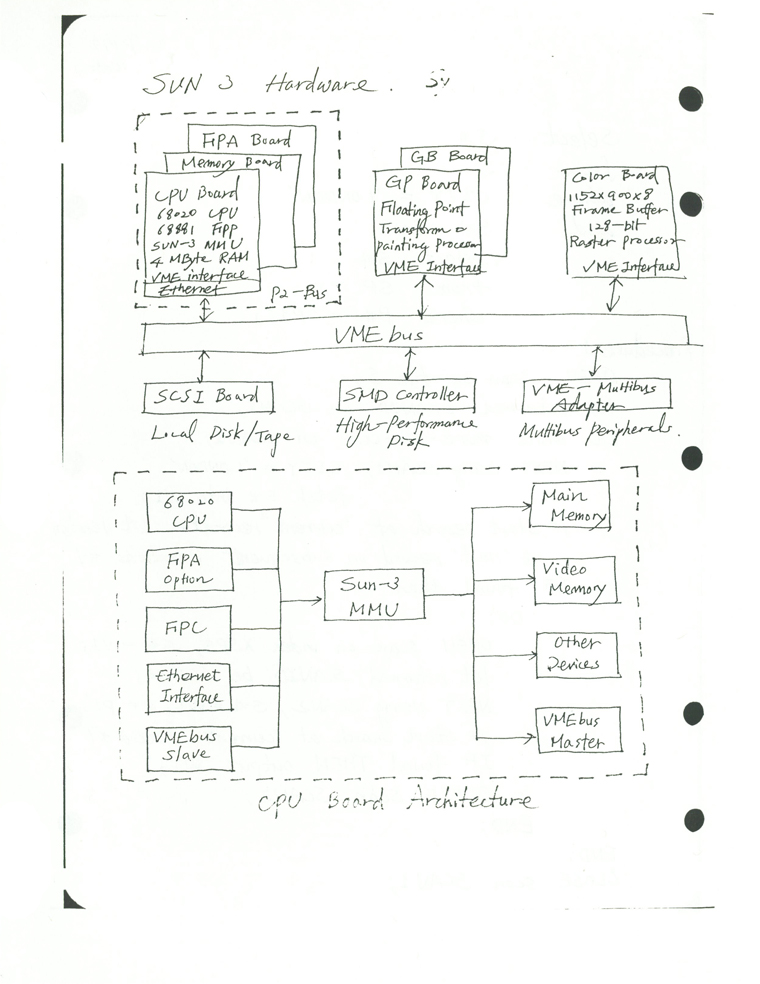 SUN 3 Hardware.
FPA Board
Memory Board
CPU Board
68020 CPU
68881 FPP
SUN-3 MMU
4 MByte RAM
VME interface
Ethernet
P2-Bus
GB Board
GP Board
Floating Point
Transform &
painting Processor
VME Interface
Color Board
1152x900x8
Frame Buffer
128-bit
Raster Processor
VME Interface
VME bus
SCSI Board
Local Disk/Tape
SMD Controller
High-Performance
Disk
VME-Multibus
Adapter
Multibus Peripherals.
68020
CPU
FPA
Option
FPC
Ethernet
Interface
VMEbus
Slave
Sun-3
MMU
Main
Memory
Video
Memory
Other
Devices
VMEbus
Master
CPU Board Architecture